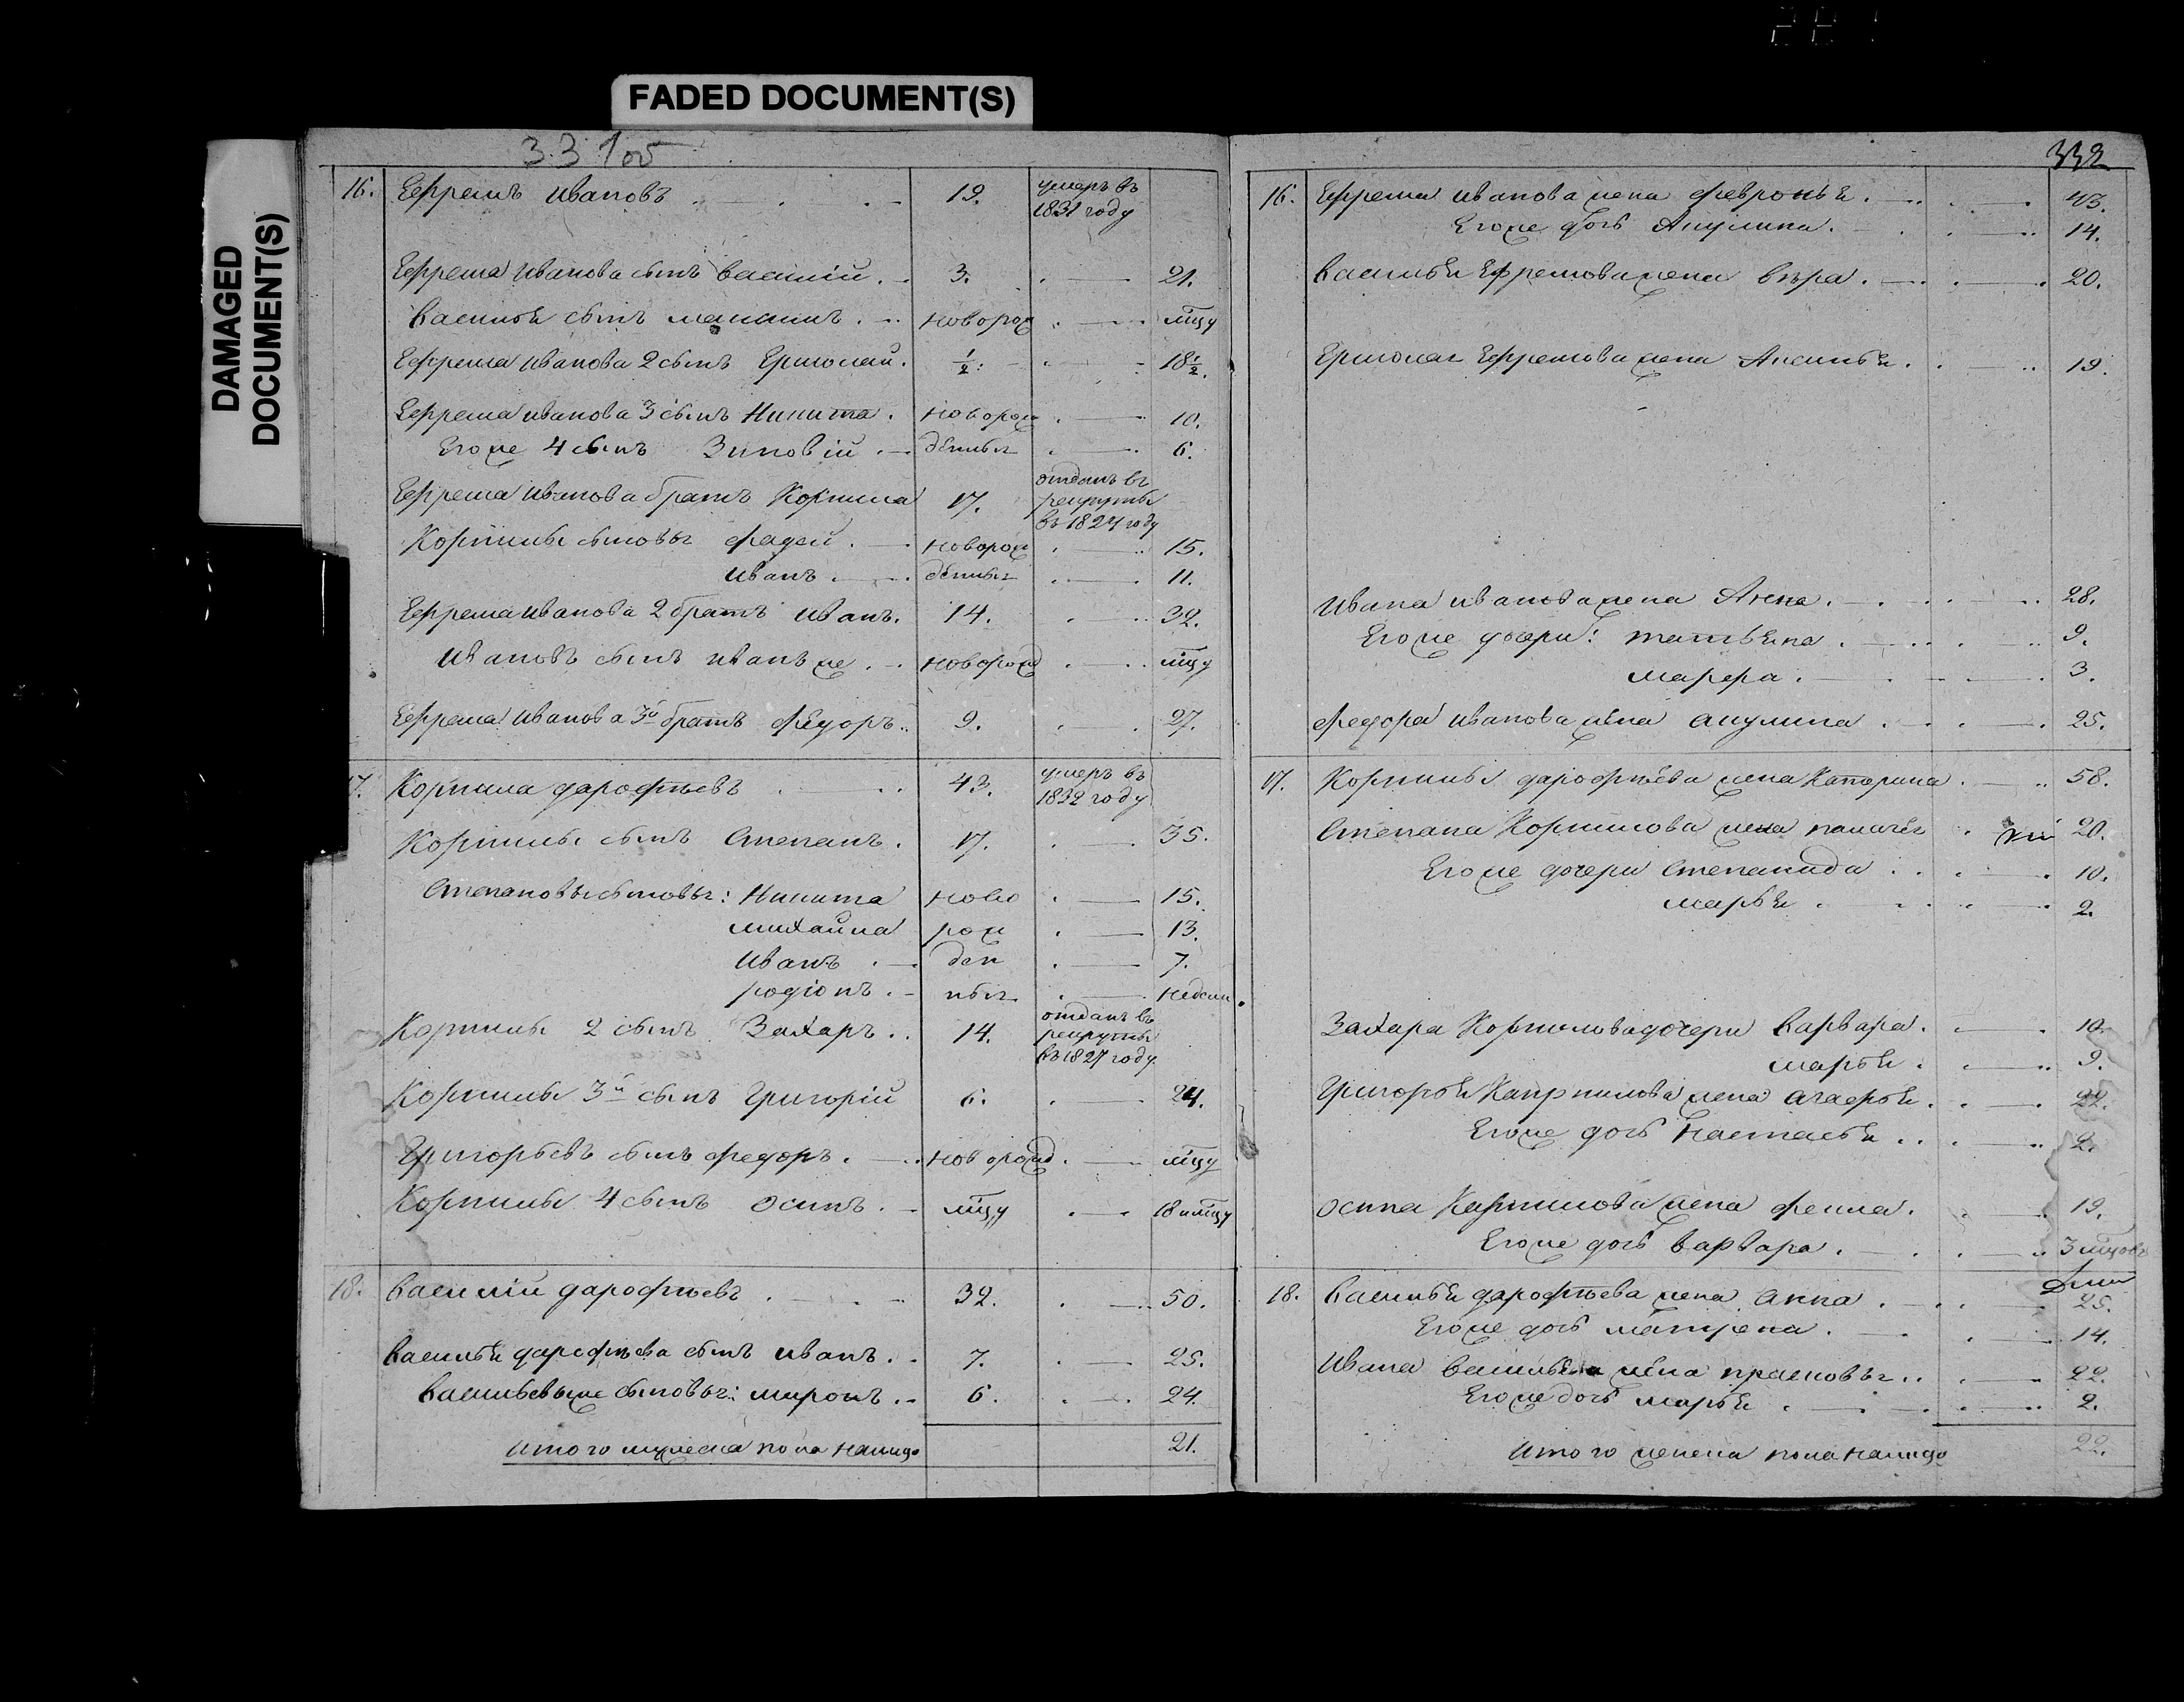 FADED DOCUMENT(S)
DAMAGED
DOCUMENT(S)
331об
16. Ефремъ Ивановъ 19. умеръ въ
1831 году
Ефрема Иванова сынъ василій 3. 21.
васильи сынъ максимъ новорож мцу
Ефрема Иванова 2 сынъ Ермолай 1/2 18 1/2.
Ефрема Иванова 3 сынъ Никита новорож 10.
Егоже 4 сынъ Зиновій денныя 6.
Ефрема Иванова братъ Корнила 17. отданъ въ
рекруты
въ 1827 году
Корнилы сыновья фадей новорож 15.
Иванъ денныя 11.
Ефрема Иванова 2 братъ Иванъ. 14. 32.
Ивановъ сынъ Иванъ же новорожд мцу
Ефрема Иванова 3й братъ федоръ 9. 27.
17. Корнила дарофѣевъ 43. умеръ въ
1832 году
Корнилы сынъ Степанъ. 17. 35.
Степановы сыновья: Никита ново 15.
михайла рож 13.
Иванъ ден 7.
родіонъ ныя недели
Корнилы 2 сынъ Захаръ 14. отданъ въ
рекруты
въ 1827 году
Корнилы 3й сынъ Григорій 6. 24.
Григорьевъ сынъ федоръ новорожд мцу
Корнилы 4 сынъ осипъ мцу 18 и мцу
18. василій дарофѣевъ 32. 50.
васильи дарофѣева сынъ иванъ 7. 25.
васильевы же сыновья: миронъ 6. 24.
Итого мужеска пола налицо 21.
332
16. Ефрема Иванова жена февронья 43.
Егоже дочь Акулина. 14.
васильи Ефремова жена вѣра 20.
Ермолая Ефремова жена Аксинья 19.
Ивана Иванова жена Анна. 28.
Егоже дочери: татьяна 9.
марфа 3.
федора Иванова жена акулина 25.
17. Корнилы дарофѣева жена Катерина 58.
Степана Корнилова жена 20.
Егоже дочери Степанида 10.
марья 2.
Захара Корнилова дочери варвара. 10.
марья 9.
Григорьи Карнилова жена агафья 22.
Егоже дочь настасья 2.
осипа Карнилова жена фекла. 19.
Егоже дочь варвара 3 мцовъ
18. васильи дарофѣева жена анна 25.
Егоже дочь матрена. 14.
Ивана васильева жена прасковья 22.
Егоже дочь марья 2.
Итого женска пола налицо 22.